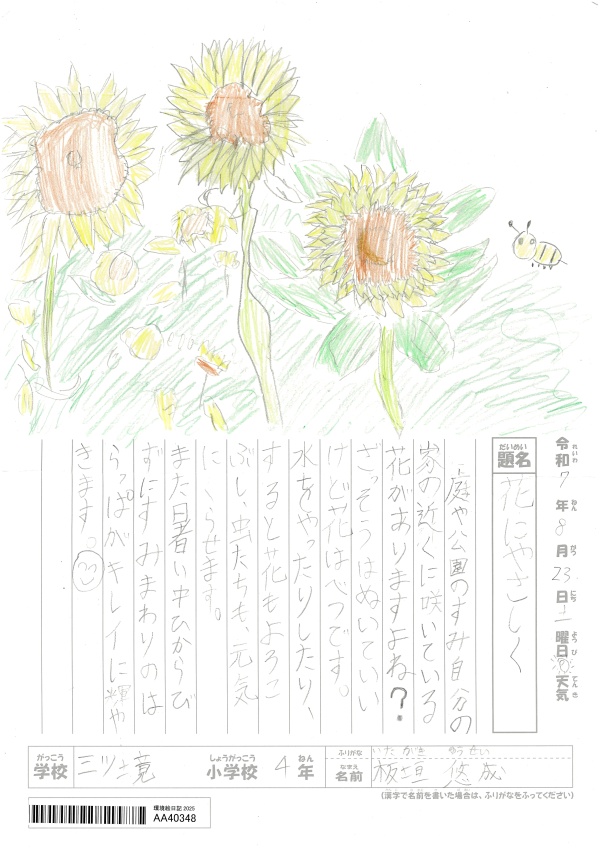 令和7年8月23日土曜日天気
れいわ ねん がつ にち ようび てんき
だいめい
題名 花にやさしく
庭や公園のすみ自分の
家の近くに咲いている
花がありますよね?
ざっそうはぬいていい
けど花はべつです。
水をやったりしたり、
すると花もよろこ
ぶし、虫たちも、元気
にくらせます。
また日暑い中ひからび
ずにすみまわりのは
らっぱがキレイに輝や
きます。
がっこう しょうがっこう ねん
学校 三ツ境 小学校 4年
ふりがな いたがき ゆうせい
なまえ
名前 板垣 悠成
(漢字で名前を書いた場合は、ふりがなをふってください)
環境絵日記 2025
AA40348